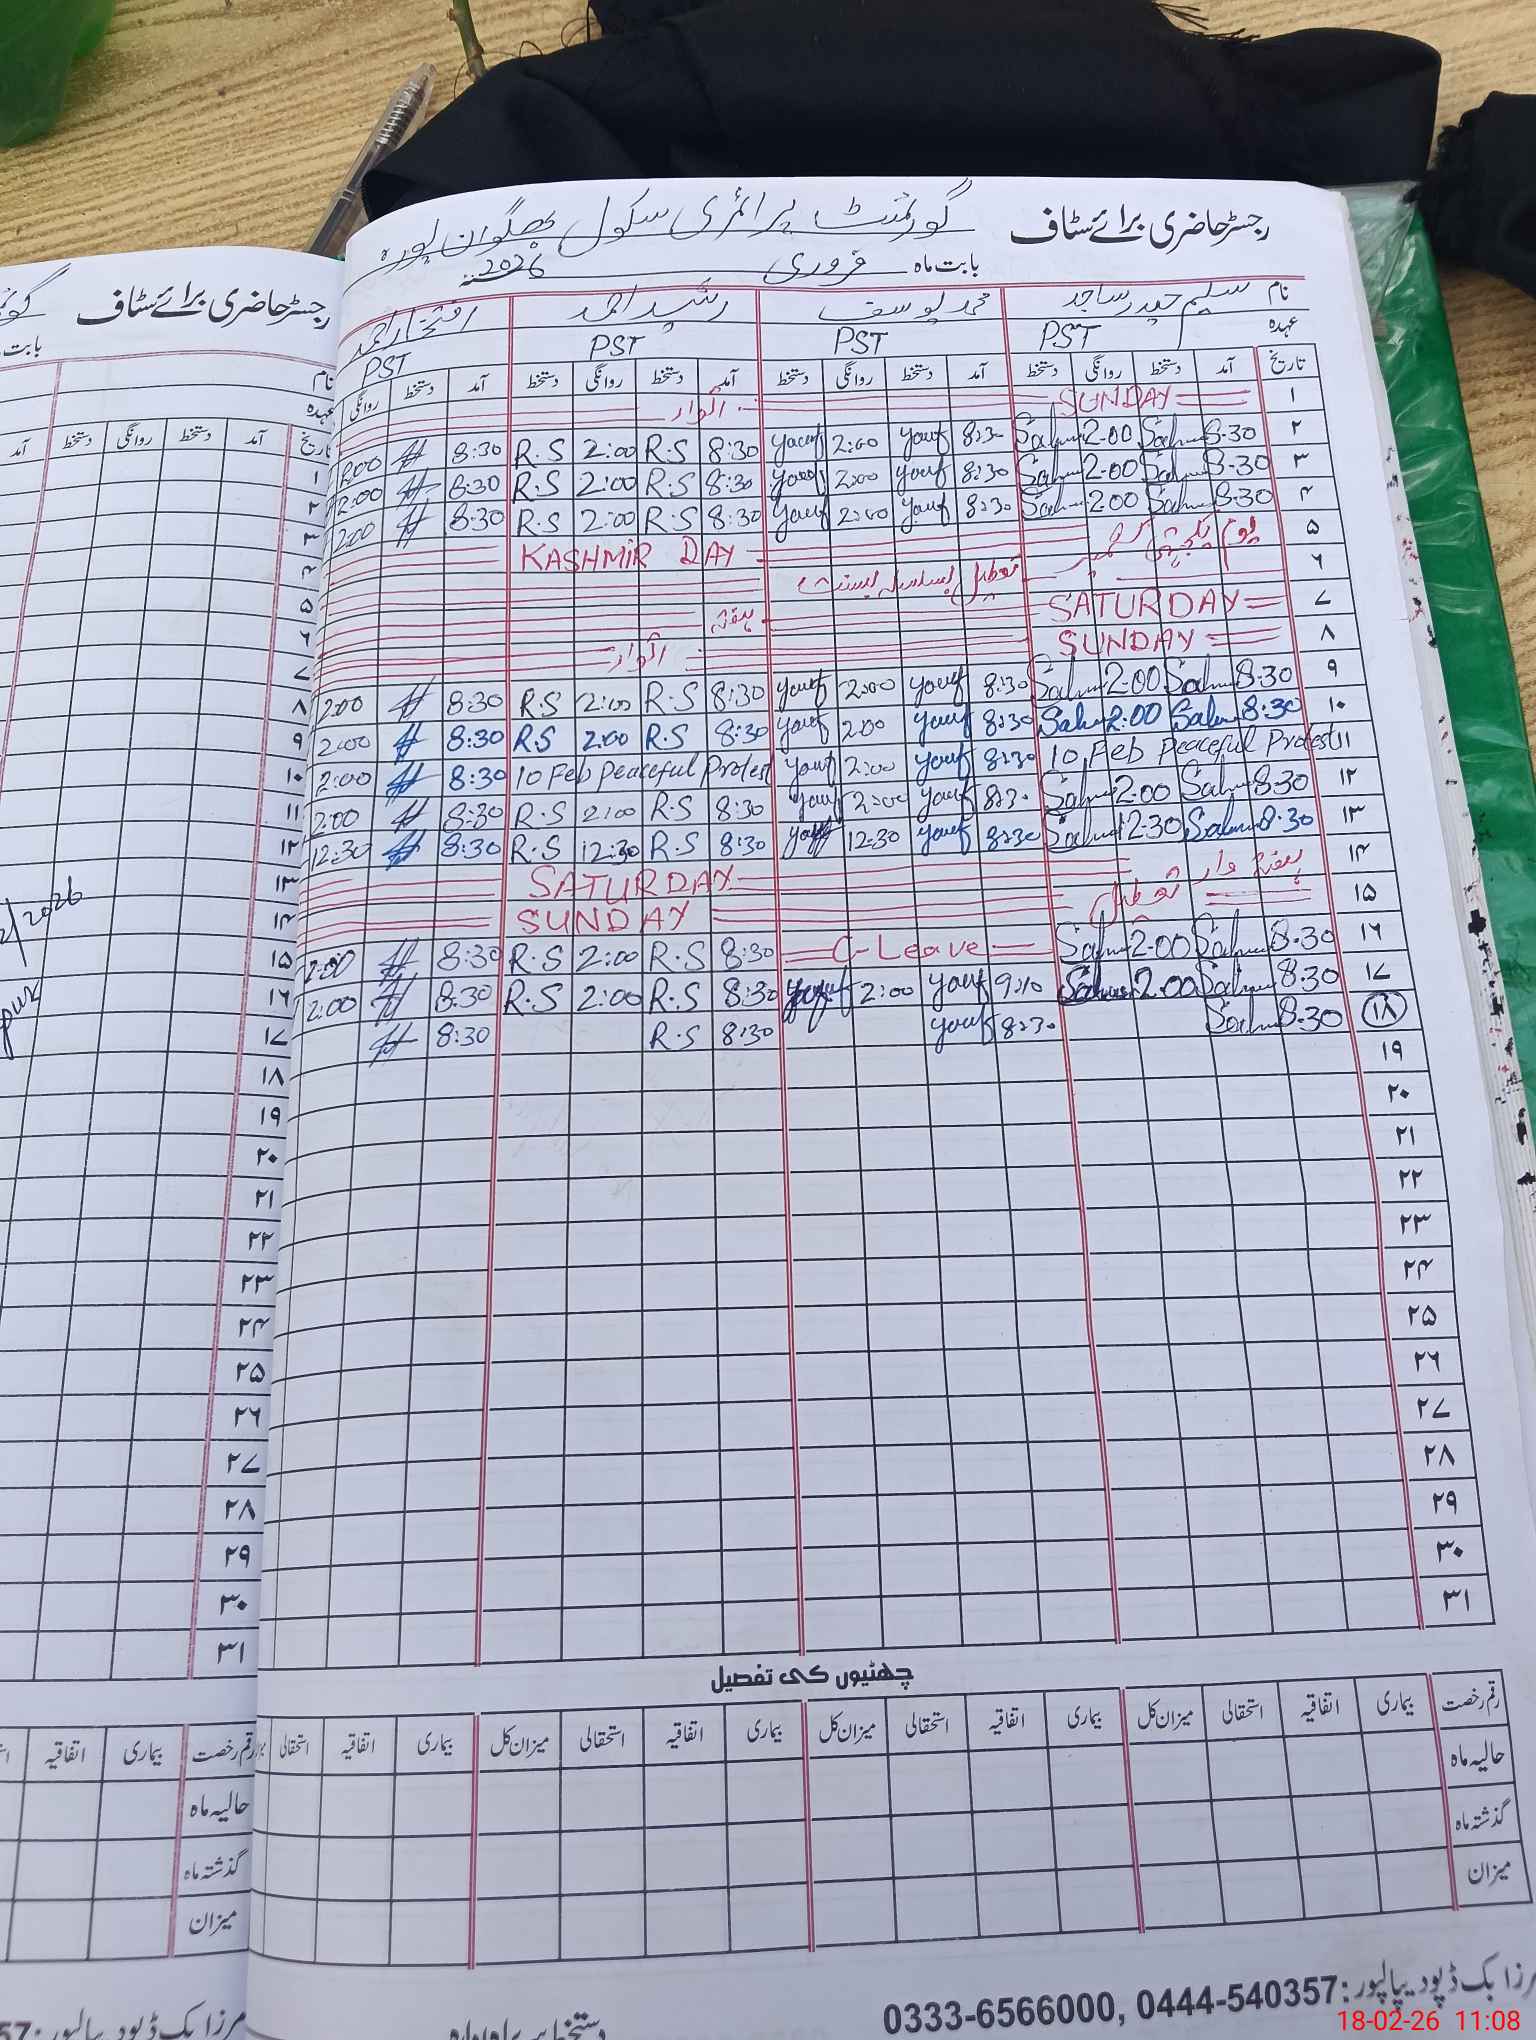 رجسٹر حاضری برائے سٹاف گورنمنٹ پرائمری سکول بھگوان پورہ
بابت ماہ فروری 2026
نام سلیم حیدر ساجد محمد یوسف رشید احمد افتخار احمد
عہدہ PST PST PST PST
تاریخ آمد دستخط روانگی دستخط آمد دستخط روانگی دستخط آمد دستخط روانگی دستخط آمد دستخط روانگی
۱ SUNDAY اتوار
۲ 8:30 Salim 2:00 Salim 8:30 yousf 2:00 yousf 8:30 R.S 2:00 R.S 8:30 2:00
۳ 8:30 Salim 2:00 Salim 8:30 yousf 2:00 yousf 8:30 R.S 2:00 R.S 8:30 2:00
۴ 8:30 Salim 2:00 Salim 8:30 yousf 2:00 yousf 8:30 R.S 2:00 R.S 8:30 2:00
۵ یوم یکجہتی کشمیر KASHMIR DAY
۶ تعطیل بسلسلہ بسنت
۷ SATURDAY ہفتہ
۸ SUNDAY اتوار
۹ 8:30 Salim 2:00 Salim 8:30 yousf 2:00 yousf 8:30 R.S 2:00 R.S 8:30 2:00
۱۰ 8:30 Salim 2:00 Salim 8:30 yousf 2:00 yousf 8:30 R.S 2:00 R.S 8:30 2:00
۱۱ 10 Feb Peaceful Protest 8:30 yousf 2:00 yousf 10 Feb Peaceful Protest 8:30 2:00
۱۲ 8:30 Salim 2:00 Salim 8:30 yousf 2:00 yousf 8:30 R.S 2:00 R.S 8:30 2:00
۱۳ 8:30 Salim 12:30 Salim 8:30 yousf 12:30 yousf 8:30 R.S 12:30 R.S 8:30 12:30
۱۴ ہفتہ وار تعطیل SATURDAY
۱۵ SUNDAY
۱۶ 8:30 Salim 2:00 Salim C-Leave 8:30 R.S 2:00 R.S 8:30 2:00
۱۷ 8:30 Salim 2:00 Salim 9:10 yousf 2:00 yousf 8:30 R.S 2:00 R.S 8:30 2:00
۱۸ 8:30 Salim 8:30 yousf 8:30 R.S 8:30
۱۹
۲۰
۲۱
۲۲
۲۳
۲۴
۲۵
۲۶
۲۷
۲۸
۲۹
۳۰
۳۱
چھٹیوں کی تفصیل
رقم رخصت بیماری اتفاقیہ استحقاقی میزان کل بیماری اتفاقیہ استحقاقی میزان کل بیماری اتفاقیہ استحقاقی میزان کل بیماری اتفاقیہ استحقاقی
حالیہ ماہ
گذشتہ ماہ
میزان
مرزا بک ڈپو دیپالپور: 0333-6566000, 0444-540357
رجسٹر حاضری برائے سٹاف
نام
عہدہ
تاریخ آمد دستخط روانگی دستخط آمد
۱
۲
۳
۴
۵
۶
۷
۸
۹
۱۰
۱۱
۱۲
۱۳
۱۴
۱۵
۱۶
۱۷
۱۸
۱۹
۲۰
۲۱
۲۲
۲۳
۲۴
۲۵
۲۶
۲۷
۲۸
۲۹
۳۰
۳۱
رقم رخصت بیماری اتفاقیہ
حالیہ ماہ
گذشتہ ماہ
میزان
مرزا بک ڈپو دیپالپور:
18-02-26 11:08